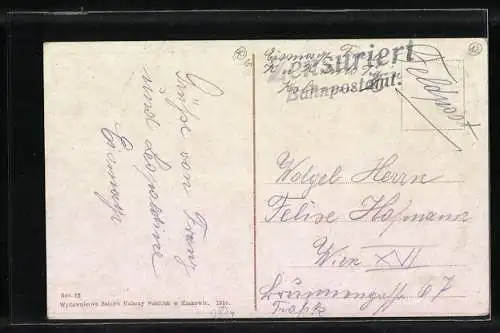 Grüsse von Franz
und Leopoldine
Eismayr
Ser. 12
Wydawnictwo Salonu Malarzy Polskich w Krakowie. 1916.
Eismayr Franz
Zensuriert
Bahnpostamt!
Feldpost
Wolgeb Herrn
Felixe Hofmann
Wien XVI
Brunnengasse 67
Trafik